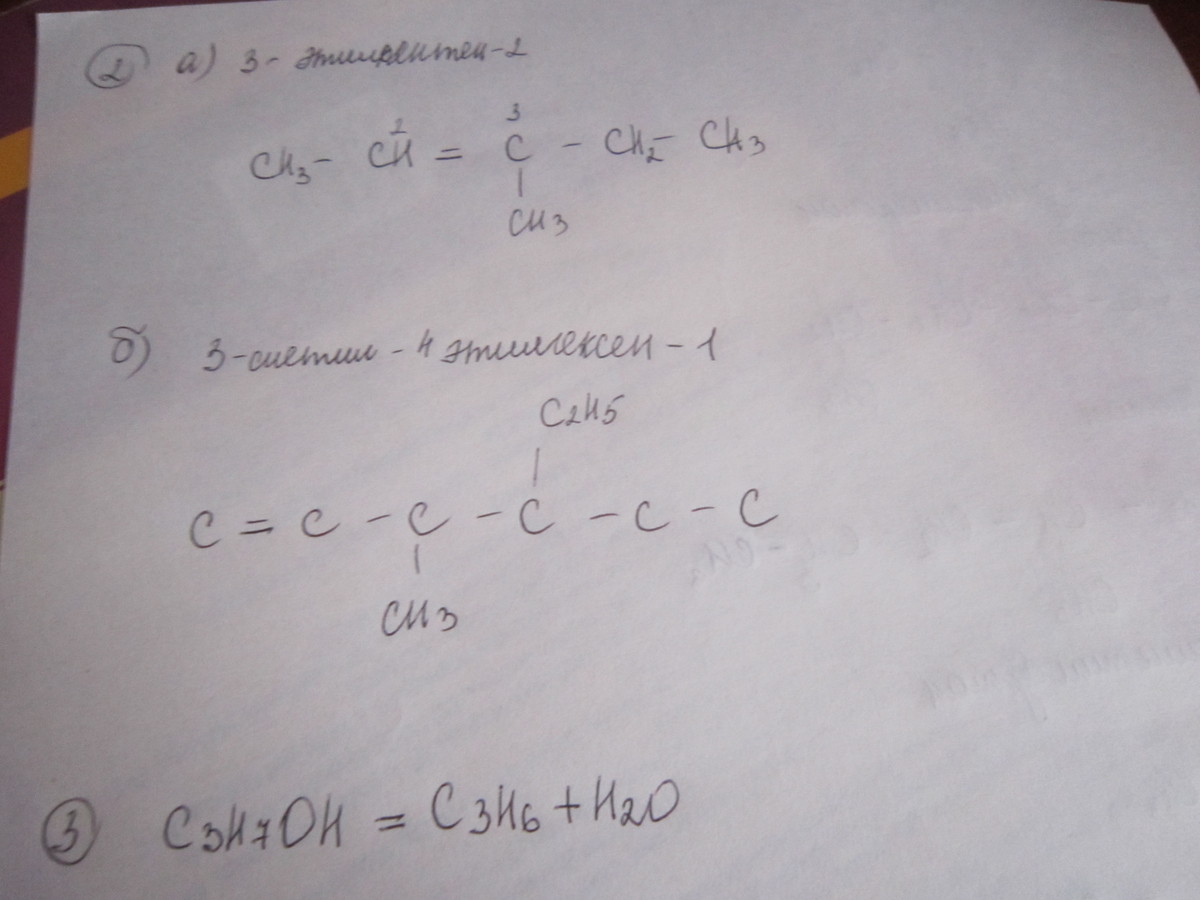 2 а) 3- этилпентен-2
2 3
CH3- CH = C - CH2- CH3
|
CH3
б) 3-метил - 4 этилгексен - 1
C2H5
|
C = C - C - C - C - C
|
CH3
3 C3H7OH = C3H6 + H2O